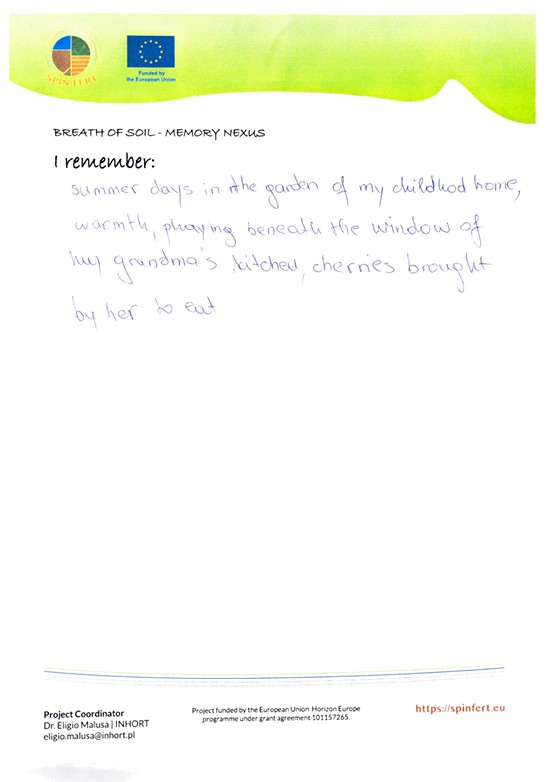 SPINFERT
Funded by
the European Union
BREATH OF SOIL - MEMORY NEXUS
I remember:
summer days in the garden of my childhod home,
warmth, playing beneath the window of
my grandma's kitchen, cherries brought
by her to eat
Project Coordinator
Dr. Eligio Malusa | INHORT
eligio.malusa@inhort.pl
Project funded by the European Union Horizon Europe
programme under grant agreement 101157265.
https://spinfert.eu